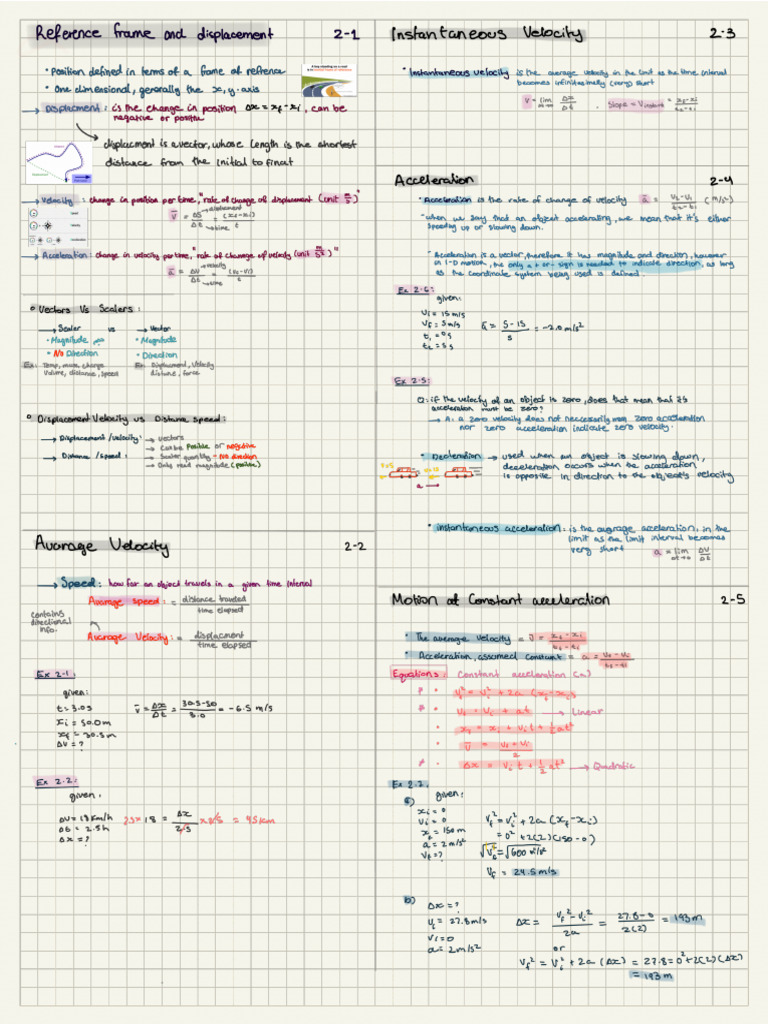 Reference frame and displacement 2-1
• Position defined in terms of a frame of refrence
• One dimensional, generally the x, y-axis
→ Displacment : is the change in position Δx = xf - xi, can be
negative or positive
displacment is a vector, whose length is the shortest
distance from the initial to final
→ Velocity : change in position per time, "rate of change of displacement (unit m/s)"
v̄ = ΔS/Δt = (xf-xi)/t
→ displacement
→ time
→ Acceleration : change in velocity per time, "rate of change of velocity (unit m/s²)"
ā = ΔV/Δt = (vf-vi)/t
→ velocity
→ time
• Vectors Vs Scalers :
→ Scalar vs → Vector
• Magnitude • Magnitude
• No Direction • Direction
Ex: Temp, mass, charge Ex: Displacment, Velocity
Volume, distance, speed distance, force
• Displacement Velocity vs Distance speed :
→ Displacement / velocity : → vectors
→ Can be Positive or negative
→ Distance / speed : → Scaler quantity - No direction
→ Only read magnitude (positive)
Avarage Velocity 2-2
→ Speed : how far an object travels in a given time interval
Avarage speed : = distance traveled / time elapsed
contains
directional
info.
Avarage Velocity : = displacment / time elapsed
Ex 2-1:
given:
t = 3.0s v̄ = Δx/Δt = 30.5-50/3.0 = -6.5 m/s
xi = 50.0m
xf = 30.5m
ΔV = ?
Ex 2-2:
given:
ΔV = 18 Km/h 2.5 × 18 = Δx/2.5 × 2.5 = 45 km
Δt = 2.5h
Δx = ?
Instantaneous Velocity 2-3
• Instantaneous velocity is the average velocity in the limit as the time interval
becomes infinitesimally (very) short
V = lim Δt→0 Δx/Δt . Slope = V instant = xf-xi/t2-t1
Acceleration 2-4
• Acceleration is the rate of change of velocity ā = v2-v1/t2-t1 (m/s²)
• when we say that an object accelerating, we mean that it's either
speeding up or slowing down.
• Acceleration is a vector, therefore it has magnitude and direction, however
in 1-D motion, the only a + or - sign is needed to indicate direction, as long
as the coordinate system being used is defined.
Ex 2-6:
given:
Vi = 15 m/s
Vf = 5 m/s ā = 5-15/5 = -2.0 m/s²
t1 = 0s
t2 = 5s
Ex 2-5:
Q: if the velocity of an object is zero, does that mean that it's
acceleration must be zero?
→ A: a zero velocity does not neccessarily mean zero acceleration
nor zero acceleration indicate zero velocity.
• Decleration → used when an object is slowing down,
deceleration occurs when the acceleration
is opposite in direction to the object's velocity
a →
• instantaneous acceleration : is the avarage acceleration, in the
limit as the limit interval becomes
very short a = lim Δt→0 ΔV/Δt
Motion at Constant acceleration 2-5
• The average velocity = v̄ = xf-xi/tf-ti
• Acceleration, assumed constant = a = vf-vi/tf-ti
Equations: Constant acceleration (a)
* • vf² = vi² + 2a (xf-xi)
* • vf = vi + at → Linear
• xf = xi + vit + ½at²
• v̄ = vf+vi/2
* • Δx = vi t + ½ at² → Quadratic
Ex 2.7:
a) given:
xi = 0
Vi = 0 vf² = vi² + 2a (xf-xi)
xf = 150m = 0² + 2(2)(150-0)
a = 2m/s² √vf² = √600 m²/s²
Vf = ? vf = 24.5 m/s
b)
Δx = ?
vf = 27.8 m/s Δx = vf²-vi²/2a = 27.8-0/2(2) = 193m
Vi = 0
or
a = 2m/s² vf² = vi² + 2a (Δx) = 27.8 = 0² + 2(2)(Δx)
= 193m